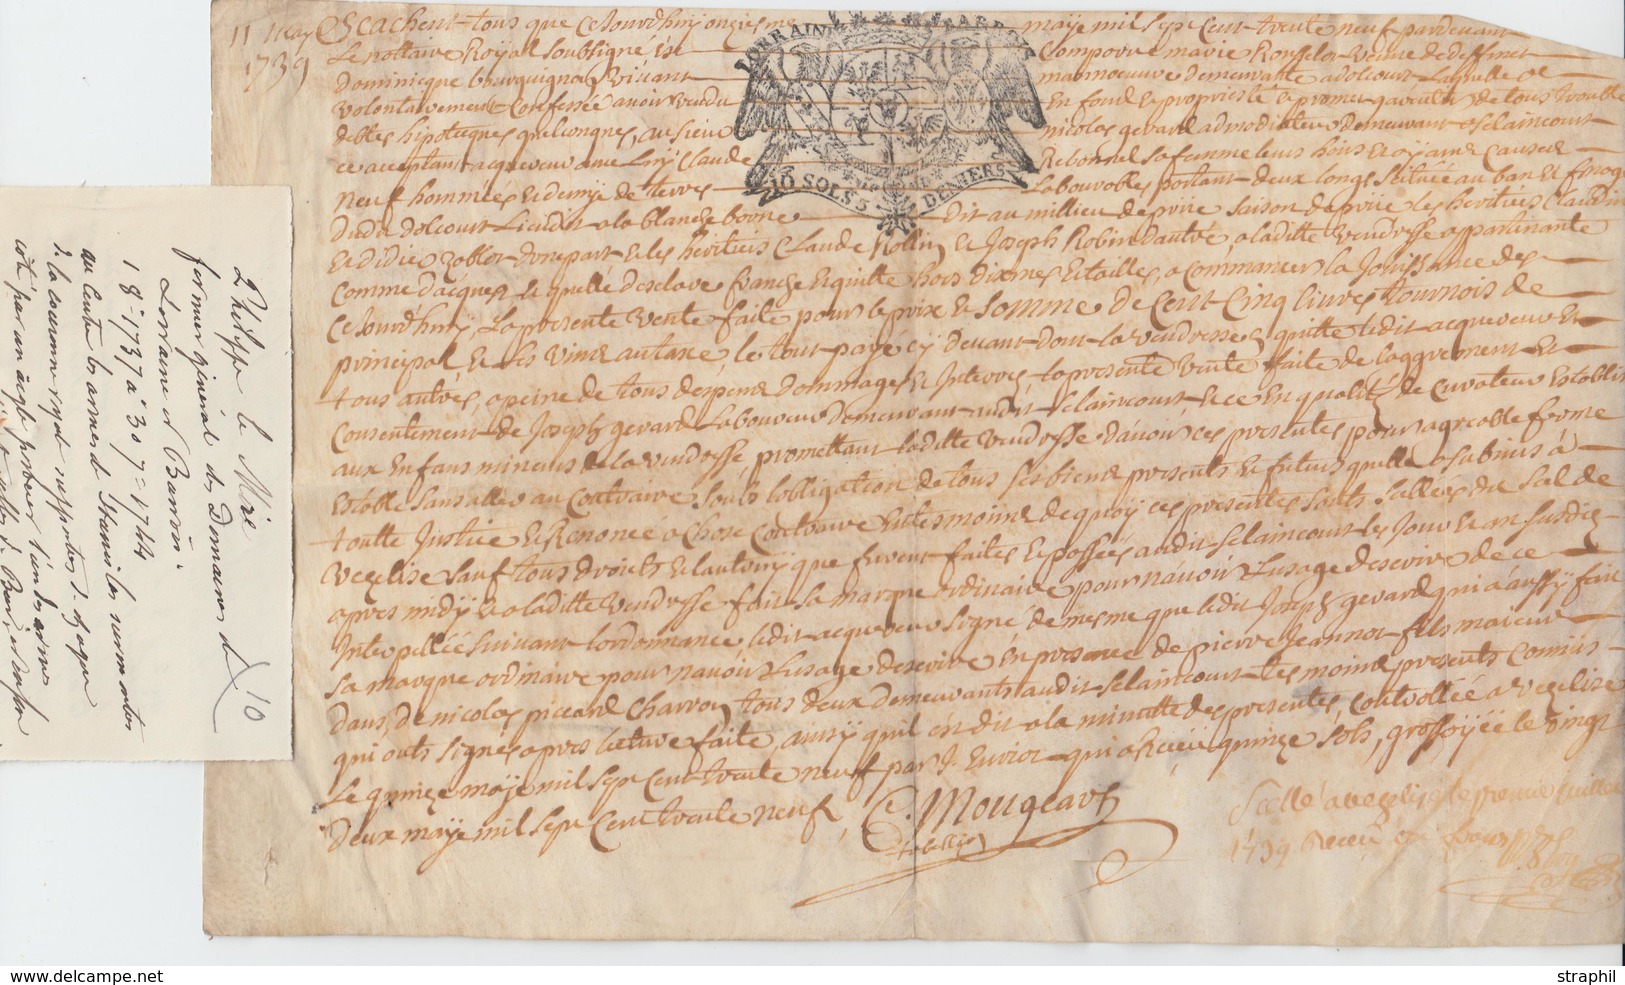 11 may
1739
Scachent tous que Cejourdhuy onzieme maÿe mil Sept Cent trente neuf pardevant
Le nottaire Royal Soubsigné est Comporue marie veuve de deffunct
Dominicque bourguignon Vivant manoeuvre demeurante a dolcourt Laquelle
volontairement Confessée avoir vendu En fond et propriété et promet garentir de tous trouble
debtes hipotecques quelconques, au Sieur nicolas gerard admodiateur demeurant a Selaincourt
ce acceptant acqueveur avec Luy Claude Rebourcel Sa femme leurs hoirs et ayant Cause
neuf hommées et demÿ de terres Labourables portant deux longs Scituée au ban et finage
Dudit dolcourt Lieudit a la blanche borne dit au millieu de
Et didier dune part et les heritiers Claude Rollin et Joseph Robin dautre a laditte venderesse appartenante
Comme dacquest et quelle desclare franche et quitte hors dixmes et tailles, a Commancer la Jouissance des
Cejourdhuy, La presente vente faite pour le prix et Somme De Cent Cinq livres tournois de
principal et les vins au taxe, le tout payé cÿ devant dont la vendresse quitte ledit acqueveur et
tous autres, a peine de tous despens dommages et Interres, la presente vente faite de laggrement et
Consentement de Joseph gerard Laboureur demeurant audit Selaincourt et ce En qualité de Curateur Establis
aux Enfans mineurs de la vendresse, promettant laditte vendresse davoir ces presentes pour agreable ferme
Estable Sans aller au Contraire Soub lobligation de tous Ses biens presents et futurs quelle a Submis à
toutte Justice et Renoncé a Chose Contraire Entesmoins de quoÿ ces presentes Sont Sellees du Sel de
vezelise Sauf tous droits et lautruÿ que furent faites et passées audit Selaincourt les Jour et an Susdits
apres midÿ et a laditte vendresse fait Sa marque ordinaire pour navoir Lusage descrire de ce
Interpellée Suivant lordonnance, ledit acqueveur Signé de mesme que ledit Joseph gerard qui a aussÿ fait
Sa marque ordinaire pour navoir Lusage descrire En presence de pierre Jeannot fils maieur
Dans, De nicolas piccard Charron tous deux demeurants audit Selaincourt tesmoins presents Connus
qui onts Signés apres lecture faite, ainsÿ quil est dit a la minutte des presentes, Controllée a Vezelise
Le quinze maÿe mil Sept Cent trente neuf par qui a Receu quinze Sols, grossoyée le vingt
deux maÿe mil Sept Cent trente neuf,
C. Mougeart
tabellion
Scellé a vezelise le premier Juillet
1739 Receu
LORRAINE BARROIS
10 SOLS 5 DENIERS
Philippe le Mire
fermier général des Domaines de
Lorraine et Barrois
1 8e 1737 à 30 7e 1744
au centre les armes de Stanislas surmontées
de la couronne royale supportées de chaque
côté par un aigle
10
www.delcampe.net
straphil